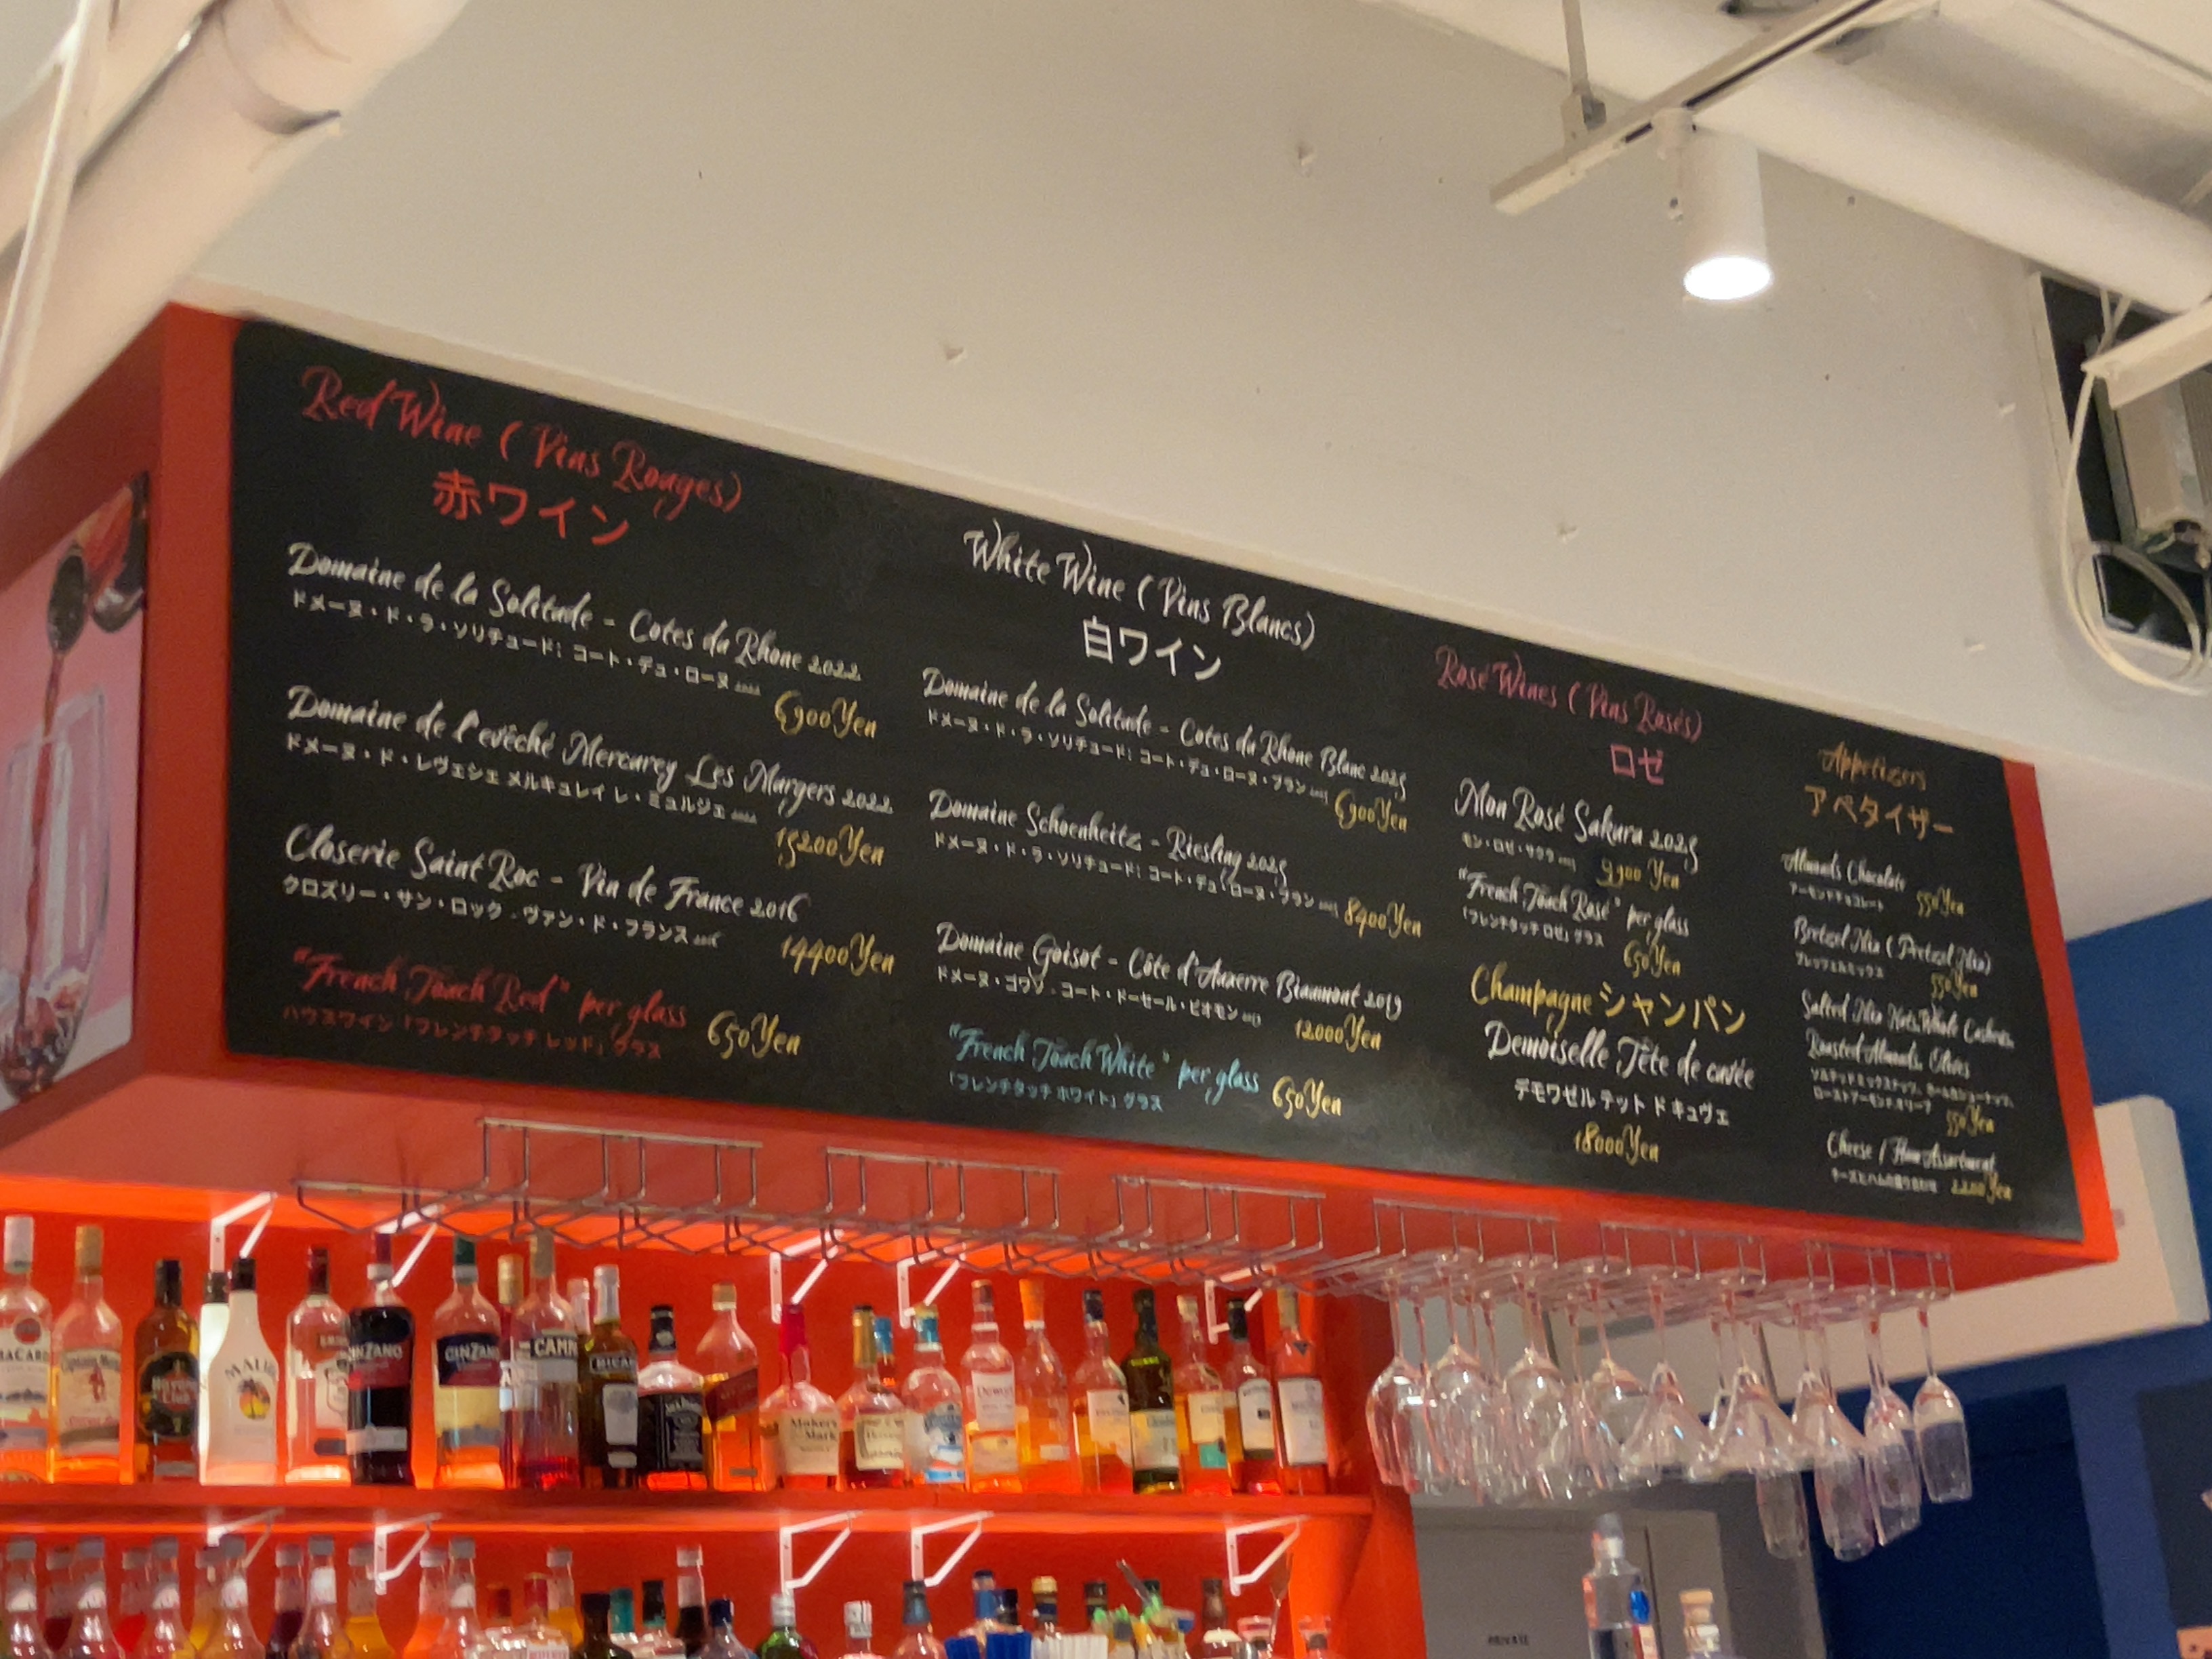 Red Wine ( Vins Rouges)
赤ワイン
Domaine de la Solitude - Cotes du Rhone 2022
ドメーヌ・ド・ラ・ソリチュード: コート・デュ・ローヌ 2022
6900Yen
Domaine de l'evêché Mercurey Les Murgers 2022
ドメーヌ・ド・レヴェシェ メルキュレイ レ・ミュルジェ 2022
15200Yen
Closerie Saint Roc - Vin de France 2016
クロズリー・サン・ロック - ヴァン・ド・フランス 2016
14400Yen
"French Touch Red" per glass
650Yen
ハウスワイン「フレンチタッチ レッド」グラス
White Wine ( Vins Blancs)
白ワイン
Domaine de la Solitude - Cotes du Rhone Blanc 2025
ドメーヌ・ド・ラ・ソリチュード: コート・デュ・ローヌ・ブラン
6900Yen
Domaine Schoenheitz - Riesling 2025
ドメーヌ・ド・ラ・ソリチュード: コート・デュ・ローヌ・ブラン
8900Yen
Domaine Goisot - Côte d'Auxerre Biaumont 2019
ドメーヌ・ゴワソ - コート・ドーセール・ビオモン
12000Yen
"French Touch White" per glass
650Yen
「フレンチタッチ ホワイト」グラス
Rosé Wines ( Vins Rosés)
ロゼ
Mon Rosé Sakura 2025
モン・ロゼ・サクラ
9900 Yen
"French Touch Rosé" per glass
「フレンチタッチ ロゼ」グラス
650Yen
Champagne シャンパン
Demoiselle Tête de cuvée
デモワゼル テット ド キュヴェ
18000Yen
Appetizers
アペタイザー
Almonds Chocolate
アーモンドチョコレート
550Yen
Bretzel Mix ( Pretzel Mix)
ブレッツェルミックス
550Yen
Salted Mix Nuts, Whole Cashews,
Roasted Almonds, Olives
ソルテッドミックスナッツ、ホールカシューナッツ、
ローストアーモンド、オリーブ
550Yen
Cheese / Ham Assortment
チーズとハムの盛り合わせ
2200Yen
CINZANO
Maker's
Mark
PRIVATE